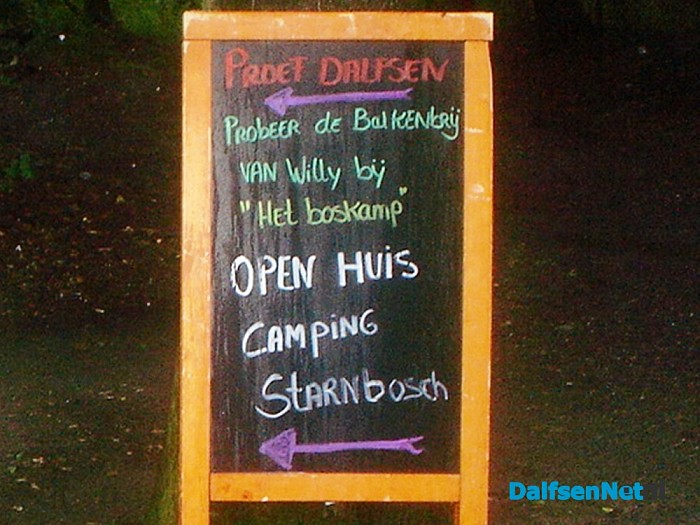 PROEF DALFSEN
PROBEER de BalKENbrij
VAN Willy bij
"Het boskamp"
OPEN HUIS
CAMPiNG
StARNbosch
DalfsenNet.nl